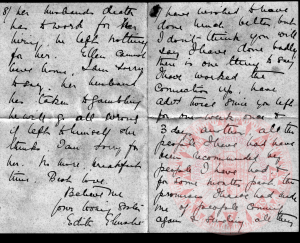 8/ her husbands death
her to work for her
living, he left nothing
for her. Ellen cannot
leave home, I am sorry
to say, her husband
has taken to gambling
& will go all wrong
if left to himself she
thinks I am sorry for
her. No more
time Best love.
Believe Me
Your loving
Edith
I have worked to have
done much better but
I don't think you will
say I have done badly
there is one thing to say
I have worked the
connection up, have
once you left
for one week once or
3 day another all the
people I have had have
been recommended by
people I have had
for some months past, the
promises I have had
of people coming
again & sending